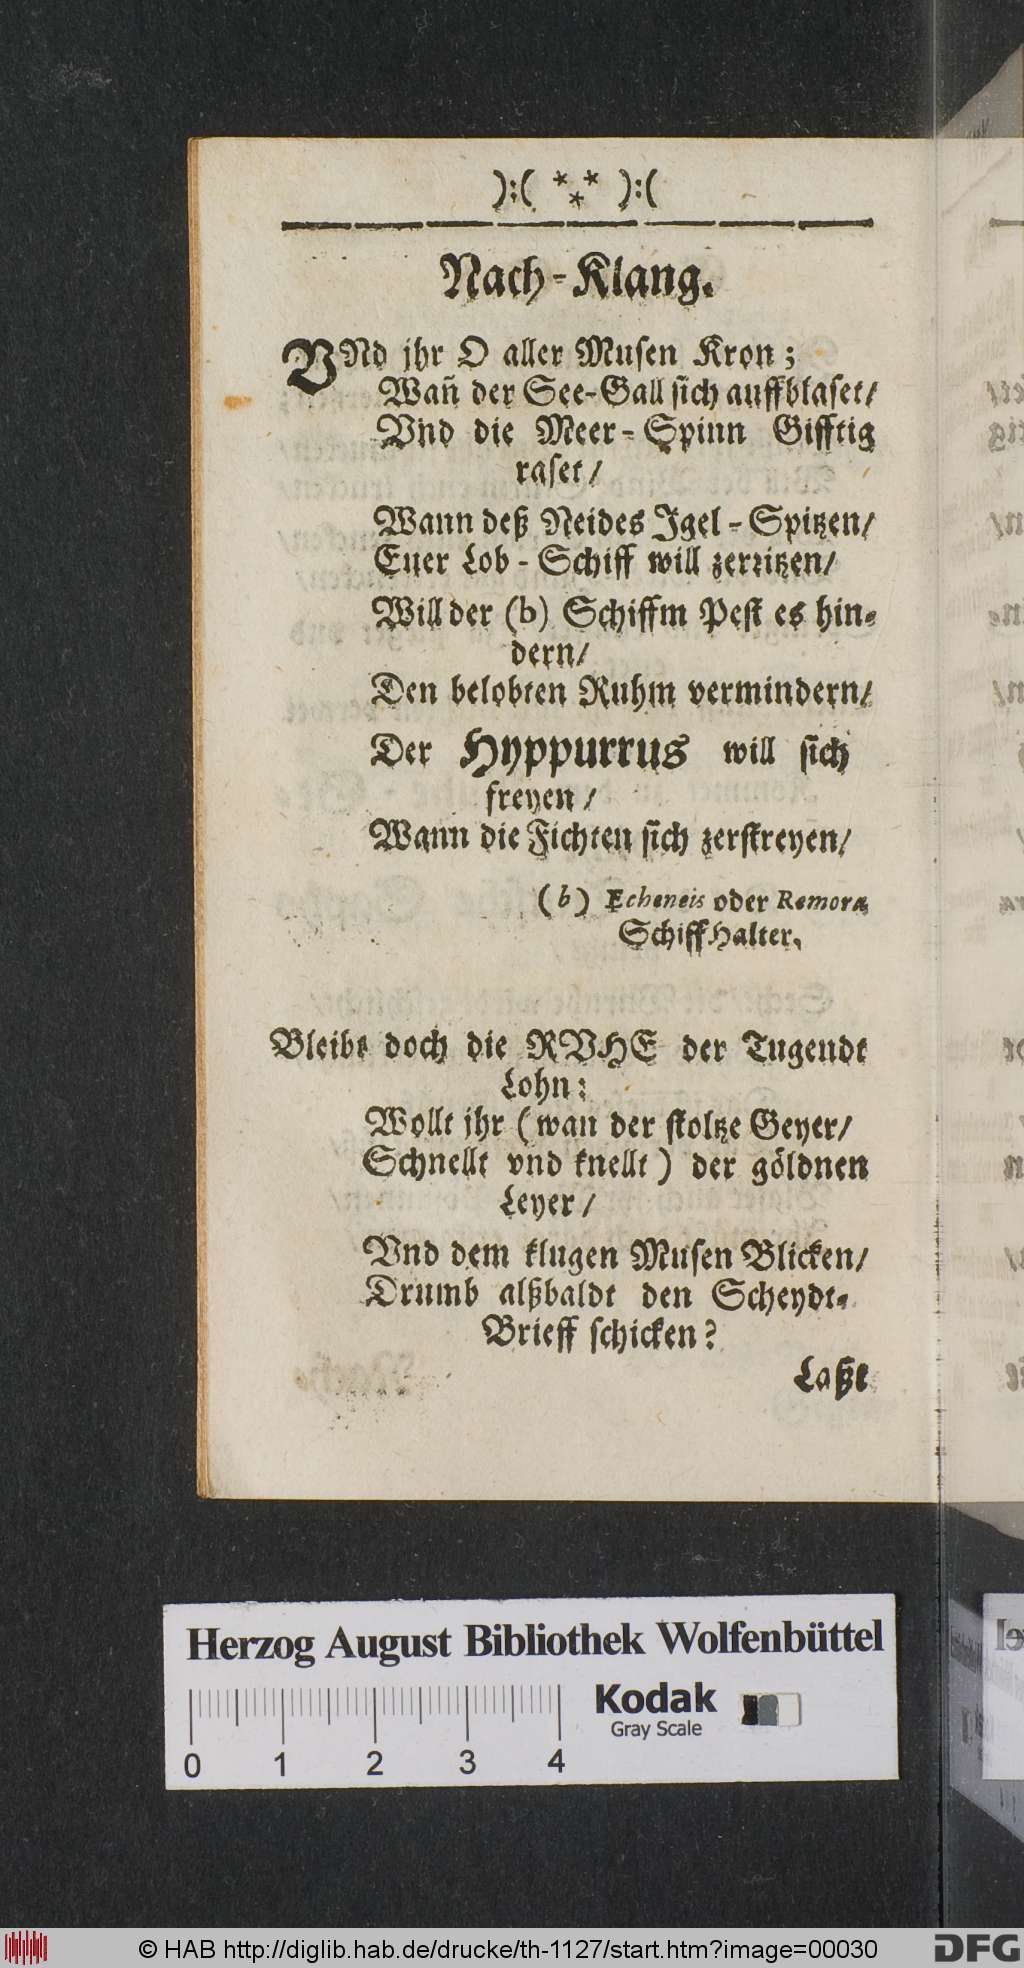 ):( *⁎* ):(
Nach-Klang.
VNd jhr O aller Musen Kron;
Wañ der See-Gall sich auffblaset/
Vnd die Meer-Spinn Gifftig
raset/
Wann deß Neides Igel-Spitzen/
Euer Lob-Schiff will zerritzen/
Will der (b) Schiffm Pest es hin-
dern/
Den belobten Ruhm vermindern/
Der Hyppurrus will sich
freyen/
Wann die Fichten sich zerstreyen/
(b) Echeneis oder Remora,
Schiff Halter.
Bleibt doch die RVHE der Tugendt
Lohn:
Wollt jhr (wan der stoltze Geyer/
Schnellt vnd knellt) der göldnen
Leyer/
Vnd dem klugen Musen Blicken/
Drumb alßbaldt den Scheydt-
Brieff schicken?
Laßt
Herzog August Bibliothek Wolfenbüttel
Kodak
Gray Scale
0 1 2 3 4
© HAB http://diglib.hab.de/drucke/th-1127/start.htm?image=00030
DFG